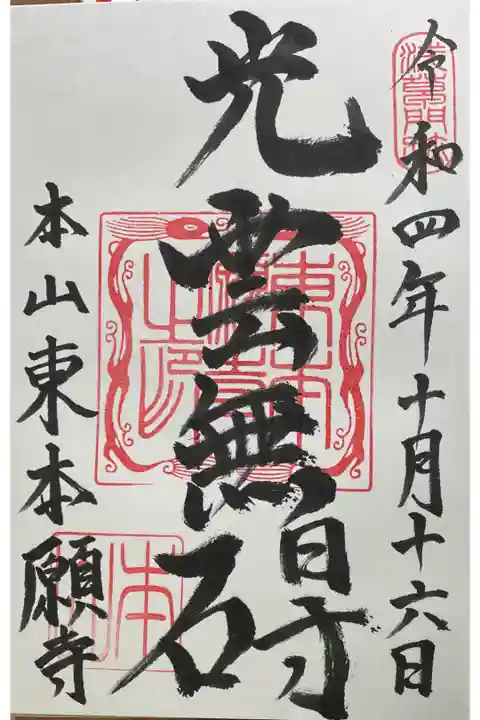 令和四年十月十六日
光雲無碍
本山東本願寺
浅草門跡